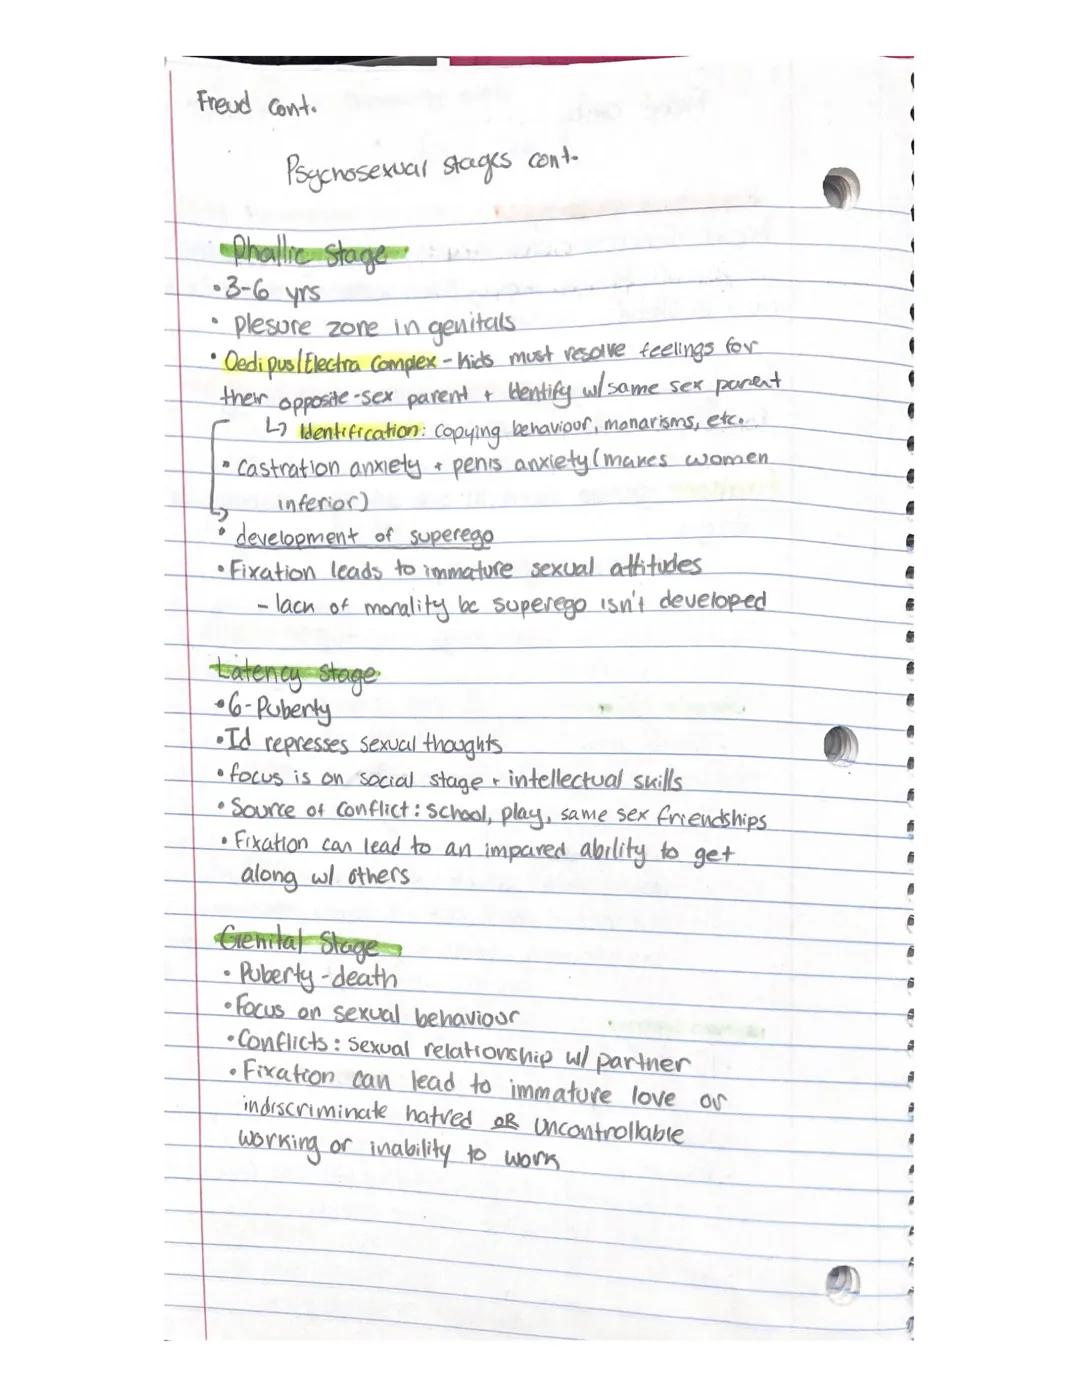 Freud cont.
Psychosexual stages cont.
Phallic Stage
• 3-6 yrs
• plesure zone in genitals
• Oedipus/Electra Complex - kids must resolve feelings for
their opposite-sex parent + Identify w/ same sex parent
↳ Identification: copying behaviour, manarisms, etc.
• castration anxiety + penis anxiety (makes women
inferior)
• development of superego
• Fixation leads to immature sexual attitudes
- lack of morality bc superego isn't developed
Latency Stage
• 6-Puberty
• Id represses sexual thoughts
• focus is on social stage + intellectual skills
• Source of conflict: school, play, same sex friendships
• Fixation can lead to an impared ability to get
along w/ others
Genital Stage
• Puberty-death
• Focus on sexual behaviour
• Conflicts: sexual relationship w/ partner
• Fixation can lead to immature love or
indiscriminate hatred OR uncontrollable
working or inability to work